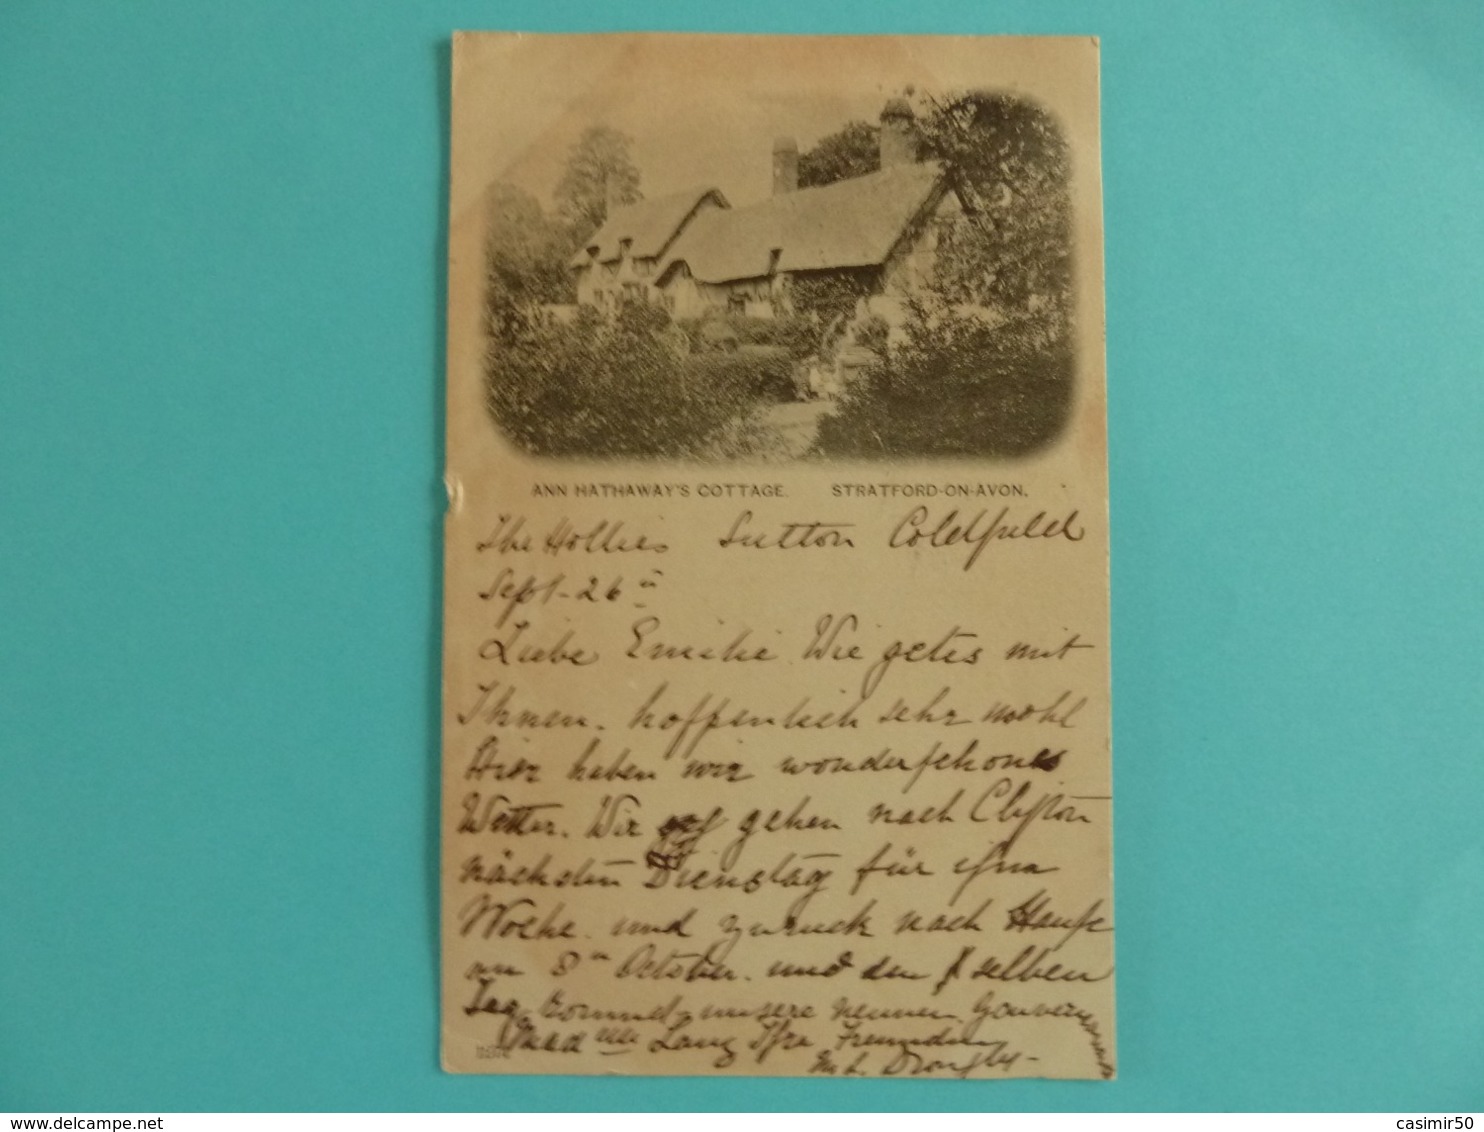 ANN HATHAWAY'S COTTAGE. STRATFORD-ON-AVON.
The Hollies Sutton Coldfield
Sept. 26
Liebe Emilie Wie getes mit
Ihnen. hoffenlich sehr wohl
Hier haben wir wonderschones
Wetter. Wir gehen nach Clifton
nächsten Dienstag für
Woche. und zuruck nach Hause
am 8 October. und den selben
Tag kommed unsere neuen
Mad Lang Ihre Freundin
M. L.
www.delcampe.net
casimir50